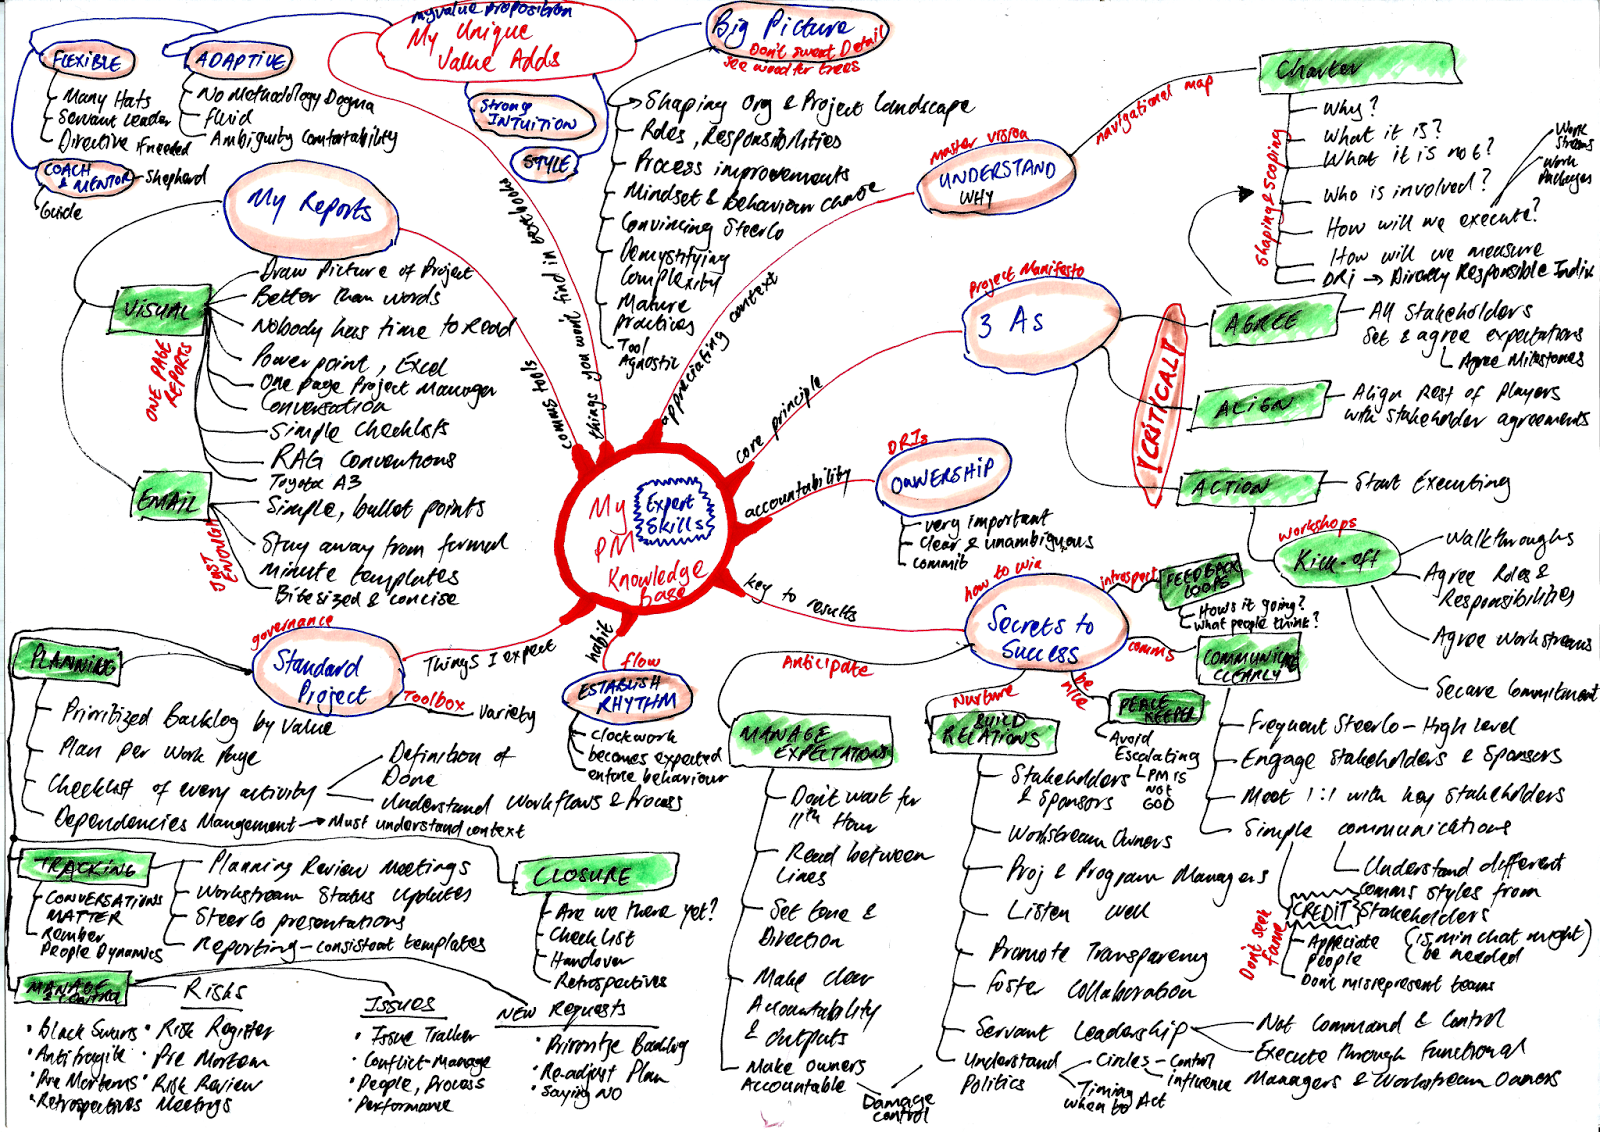 my value proposition
My Unique
Value Adds
Big Picture
Don't sweat Detail
See wood for trees
FLEXIBLE
Many Hats
Servant Leader
Directive if needed
ADAPTIVE
No Methodology Dogma
fluid
Ambiguity Comfortability
COACH
& MENTOR
Shepherd
Guide
Strong
INTUITION
STYLE
Shaping Org & Project Landscape
Roles, Responsibilities
Process improvements
Mindset & Behaviour change
Convincing SteerCo
Demystifying
Complexity
Mature
practices
Tool
Agnostic
My Reports
comms tools
things you won't find in textbook
appreciating context
VISUAL
ONE PAGE
REPORTS
Draw Picture of Project
Better than words
Nobody has time to read
Powerpoint, Excel
One page Project Manager
Conversation
Simple Checklists
RAG Conventions
Toyota A3
EMAIL
JUST
ENOUGH
Simple, bullet points
Stay away from formal
minute templates
Bitesized & concise
master vision
UNDERSTAND
WHY
navigational map
Charter
Shaping & Scoping
Why?
What it is?
What it is not?
Who is involved?
How will we execute?
Work
Streams
Work
Packages
How will we measure
DRI → Directly Responsible Indiv
Project Manifesto
3 As
core principle
CRITICAL!
AGREE
All Stakeholders
Set & agree expectations
Agree Milestones
ALIGN
Align Rest of Players
with stakeholder agreements
ACTION
Start Executing
workshops
Kick-off
Walkthroughs
Agree Roles &
Responsibilities
Agree workstreams
Secure Commitment
My
PM
Knowledge
base
Expert
Skills
accountability
DRIs
OWNERSHIP
very important
Clear & unambiguous
commit
key to results
how to win
Secrets to
Success
introspect
FEEDBACK
LOOPS
How's it going?
What people think?
comms
COMMUNICATE
CLEARLY
Frequent SteerCo - High level
Engage Stakeholders & Sponsors
Meet 1:1 with key Stakeholders
Simple communications
Understand different
comms styles from
Stakeholders
(15 min chat might
be needed)
CREDIT
Don't seek
fame
Appreciate
People
Don't misrepresent teams
be
nice
PEACE
KEEPER
Avoid
Escalating
PM IS
NOT
GOD
Nurture
BUILD
RELATIONS
Stakeholders
& Sponsors
Workstream Owners
Proj & Program Managers
Listen well
Promote Transparency
foster collaboration
Servant Leadership
Not Command & Control
Execute through Functional
Managers & Workstream Owners
Understand
Politics
Circles - Control
influence
Timing
when to Act
Damage
control
Anticipate
MANAGE
EXPECTATIONS
Don't wait for
11th Hour
Read between
Lines
Set tone &
Direction
Make clear
Accountability
& outputs
Make owners
Accountable
habit
flow
ESTABLISH
RHYTHM
Clockwork
becomes expected
ensure behaviour
Things I expect
governance
Standard
Project
Toolbox
Variety
PLANNING
Prioritized Backlog by Value
Plan per work page
Checklist of every activity
Definition of
Done
Understand Workflows & Process
Dependencies Mangement → Must understand context
TRACKING
CONVERSATIONS
MATTER
Rember
People Dynamics
Planning Review Meetings
Workstream Status Updates
SteerCo presentations
Reporting - consistent templates
CLOSURE
Are we there yet?
Checklist
Handover
Retrospectives
MANAGE
& Control
Risks
• Black Swans
• Antifragile
• Pre Mortems
• Retrospectives
• Risk Register
• Pre Mortem
• Risk Review
Meetings
Issues
• Issue Tracker
• Conflict-Manage
• People, Process
• Performance
NEW Requests
• Prioritize Backlog
• Re-adjust Plan
• Saying NO